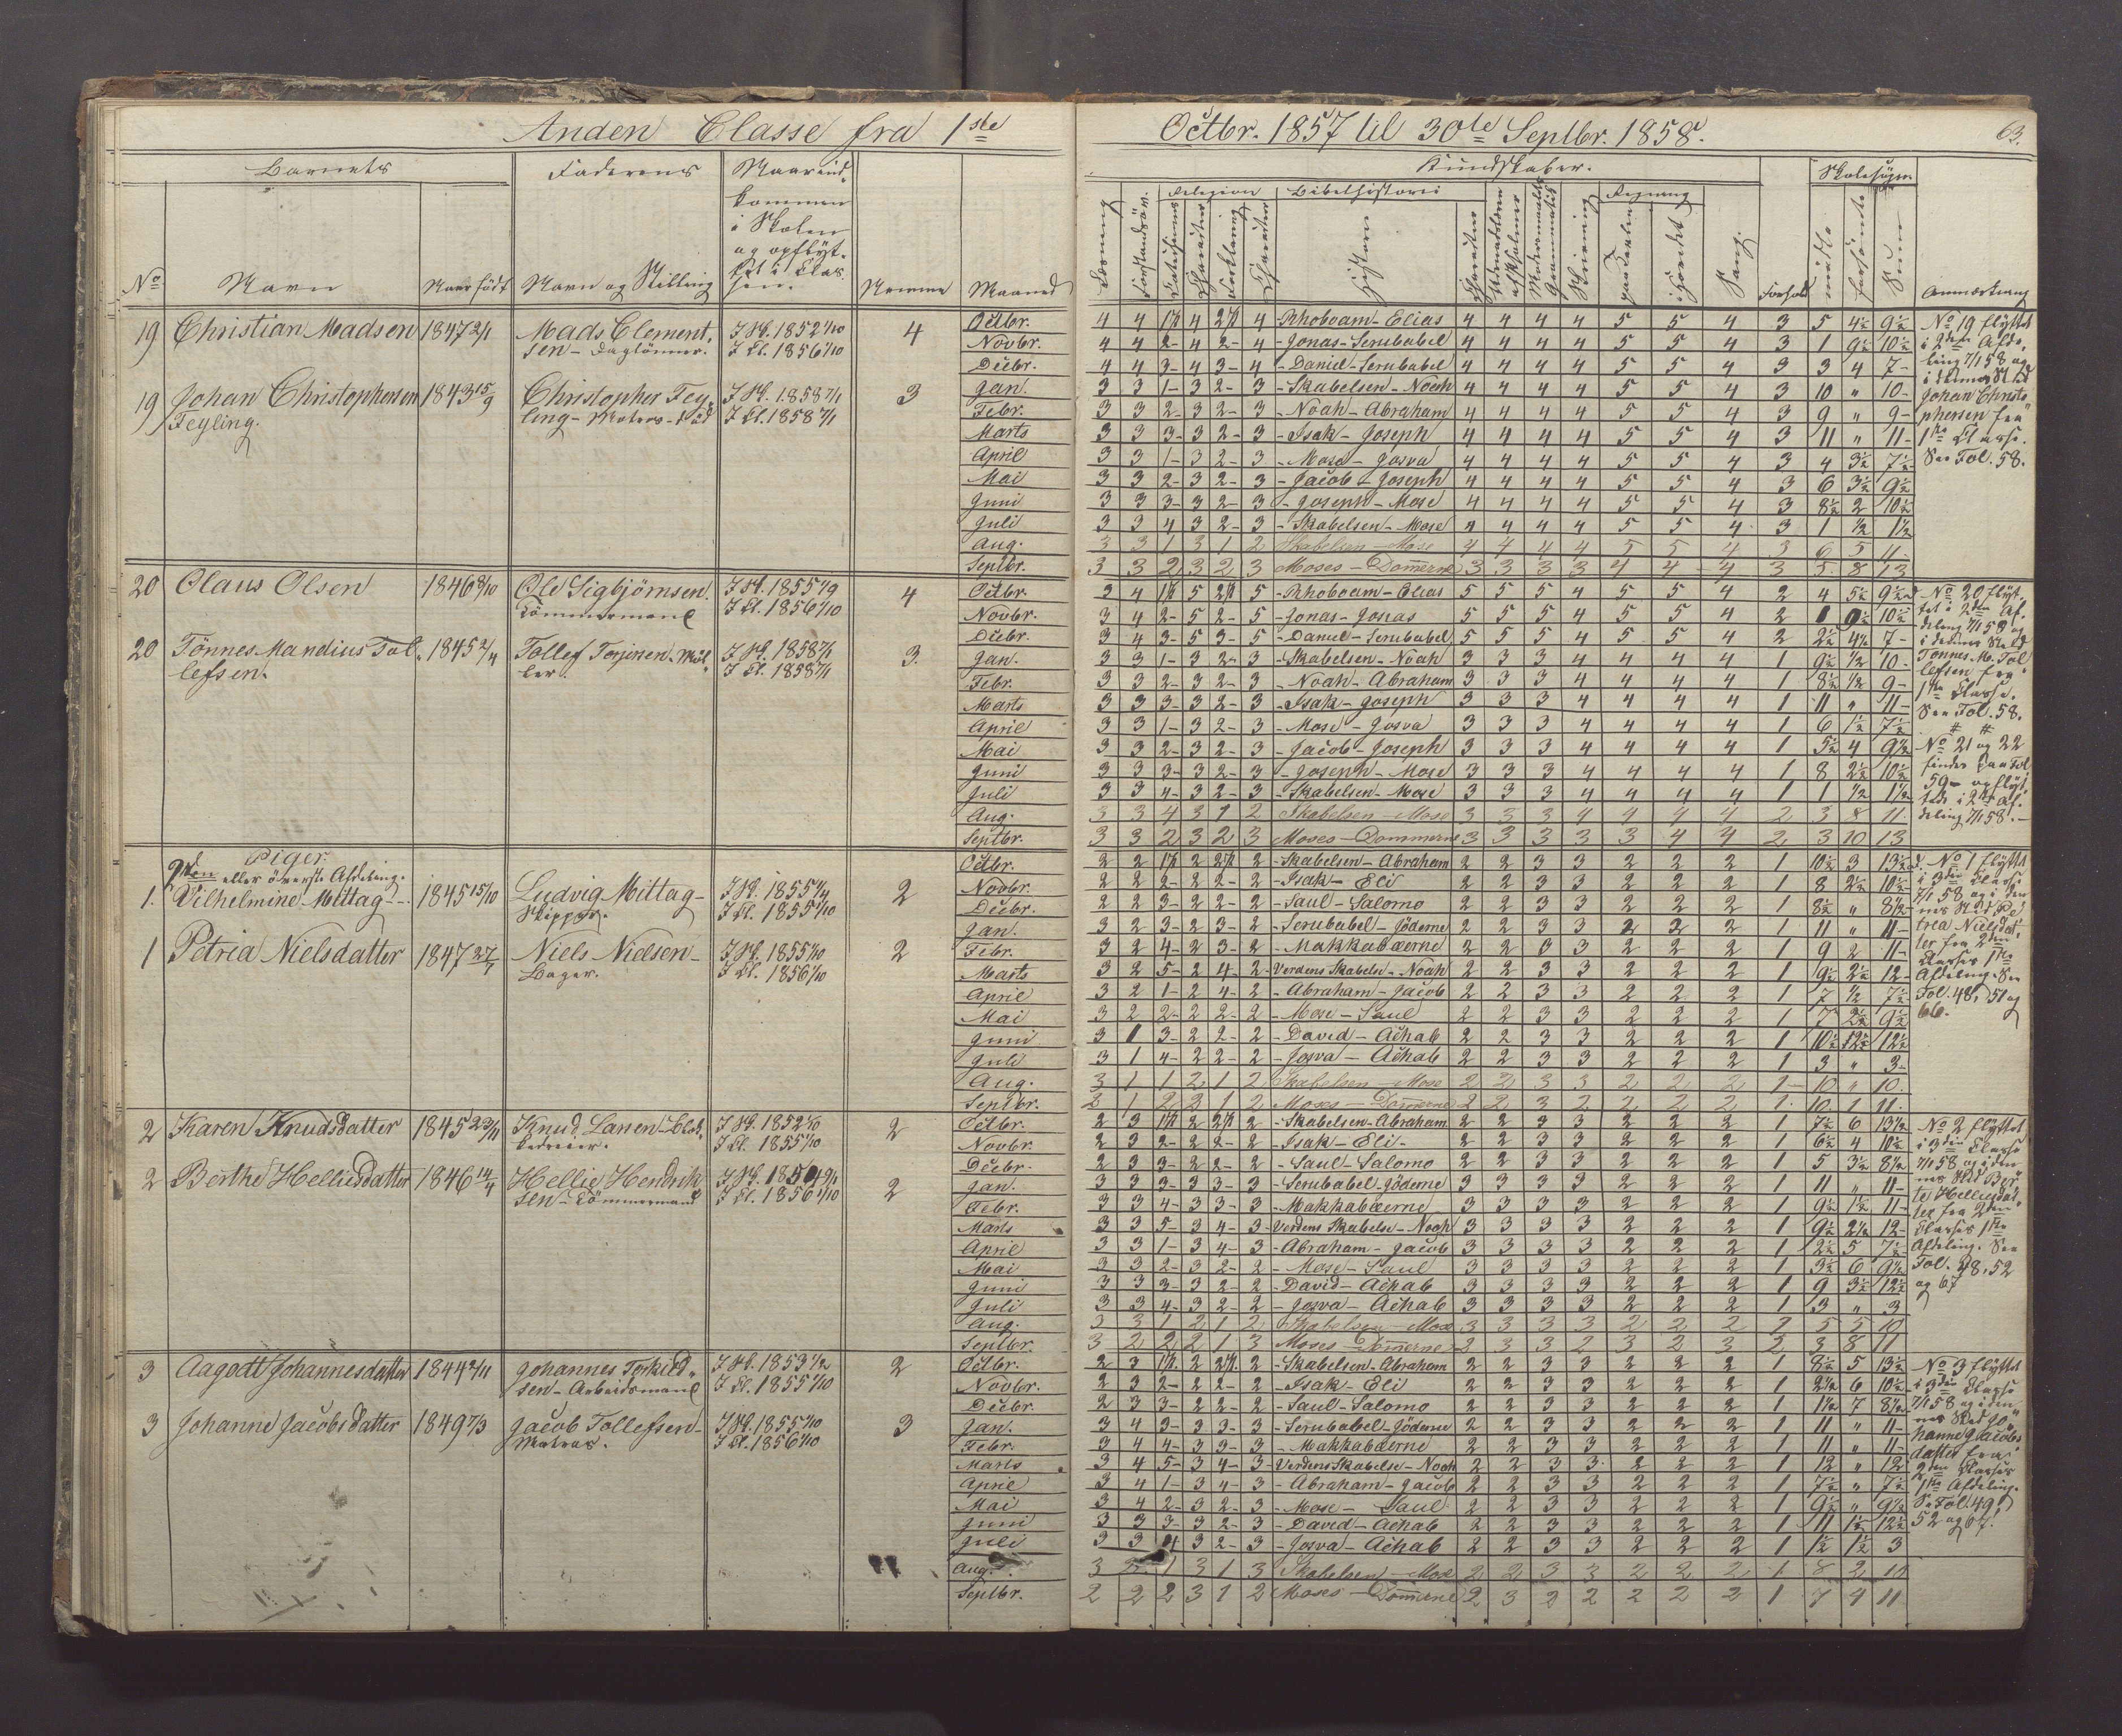 Anden Classe fra 1ste
Octbr. 1857 til 30te Septbr. 1858.
63.
Barnets
Faderens
No
Navn
Naar født
Navn og Stilling
Naar ind-
kommen
i Skolen
og opflyt-
tet i Clas-
sen.
Nemme
Maaned
Kundskaber.
Religion
Bibelhistorie
Regning
Sang.
Forhold
Anmærkning
19 Christian Madsen 1847 2/1 Mads Clement- I Sk. 1852 1/10 4
sen - Daglönner. I Cl. 1856 1/10
19 Johan Christophersen 1843 15/9 Christopher Fey- I Sk. 1858 7/1 3
Feyling. ling - I Cl. 1858 7/1
Octbr. 4 4 4 4 - Rhoboam - Elias 4 4 4 4 5 5 4 3 5 4½ 9½
Novbr. 4 4 2 - 4 2 - 4 - Jonas - Serubabel 4 4 4 4 5 5 4 3 1 9½ 10½
Decbr. 4 4 3 - 4 3 - 4 - Daniel - Serubabel 4 4 4 4 5 5 4 3 3 4 7 -
Jan. 3 3 1 - 3 2 - 3 - Skabelsen - Noah 4 4 4 4 5 5 4 3 10 " 10 -
Febr. 3 3 2 - 3 2 - 3 - Noah - Abraham 4 4 4 4 5 5 4 3 9 " 9 -
Marts 3 3 3 - 3 2 - 3 - Isak - Joseph 4 4 4 4 5 5 4 3 11 " 11 -
April 3 3 1 - 3 2 - 3 - Mose - Josva 4 4 4 4 5 5 4 3 4 3½ 7½
Mai 3 3 2 - 3 2 - 3 - Jacob - Joseph 4 4 4 4 5 5 4 3 6 3½ 9½
Juni 3 3 3 - 3 2 - 3 - Joseph - Mose 4 4 4 4 5 5 4 3 8½ 2 10½
Juli 3 3 4 3 2 - 3 - Skabelsen - Mose 4 4 4 4 5 5 4 3 1 ½ 1½
Aug. 3 3 1 3 1 2 Skabelsen - Mose 4 4 4 4 5 5 4 3 6 5 11
Septbr. 3 3 2 3 2 3 Moses - Dommerne 3 3 3 3 4 4 4 3 5 8 13
No 19 flyttet
i 2den Afde-
ling 7/1 58 og
i dennes Sted
Johan Christo-
phersen fra
1ste Classe.
See Fol. 58.
20 Olaus Olsen 1846 8/10 Ole Sigbjörnsen. I Sk. 1855 1/9 4
Tömmermand I Cl. 1856 1/10
20 Tönnes Mandius Tol- 1845 2/4 Tollef Terjesen - Möl- I Sk. 1858 7/1 3.
lefsen. ler. I Cl. 1858 7/1
Octbr. 3 4 5 5 - Rhoboam - Elias 5 5 5 4 5 5 4 2 4 5½ 9½
Novbr. 3 4 2 - 5 2 - 5 - Jonas - Josias 5 5 5 4 5 5 4 2 10½
Decbr. 3 4 3 - 5 3 - 5 - Daniel - Serubabel 5 5 5 4 5 5 4 2 2½ 4½ 7 -
Jan. 3 3 1 - 3 2 - 3 - Skabelsen - Noah 3 3 3 4 4 4 4 1 9½ ½ 10 -
Febr. 3 3 2 - 3 2 - 3 - Noah - Abraham 3 3 3 4 4 4 4 1 8½ ½ 9 -
Marts 3 3 3 - 3 2 - 3 - Isak - Joseph 3 3 3 4 4 4 4 1 11 " 11 -
April 3 3 1 - 3 2 - 3 - Mose - Josva 3 3 3 4 4 4 4 1 6 1½ 7½
Mai 3 3 2 - 3 2 - 3 - Jacob - Joseph 3 3 3 4 4 4 4 1 5½ 4 9½
Juni 3 3 3 - 3 2 - 3 - Joseph - Mose 3 3 3 4 4 4 4 1 8 2½ 10½
Juli 3 3 4 - 3 2 - 3 - Skabelsen - Mose 3 3 3 4 4 4 4 1 1 ½ 1½
Aug. 3 3 4 3 1 2 Skabelsen - Mose 3 3 3 4 4 4 4 2 3 8 11
Septbr. 3 3 2 3 2 3 Moses - Dommerne 3 3 3 3 3 4 4 2 3 10 13
No 20 flyt-
tet i 2den Af-
deling 7/1 58 og
i dennes Sted
Tönnes M. Tol-
lefsen fra
1ste Classe.
See Fol. 58.
No 21 og 22
findes paa Fol
59 - opflyt-
tede i 2den Af-
deling 7/1 58. -
Piger.
2den eller överste Afdeling.
1. Vilhelmine Mittag - 1845 15/10 Ludvig Mittag - I Sk. 1855 1/4 2
Skipper. I Cl. 1855 1/10
1 Petria Nielsdatter 1847 27/7 Niels Nielsen - I Sk. 1855 1/10 2
Bager. I Cl. 1856 1/10
Octbr. 2 2 2 2 - Skabelsen - Abraham 2 2 3 3 2 2 2 1 10½ 3 13½
Novbr. 2 2 2 - 2 2 - 2 - Isak - Eli 2 2 3 3 2 2 2 1 8 2½ 10½
Decbr. 2 2 3 - 2 2 - 2 - Saul - Salomo 2 2 3 3 2 2 2 1 8½ " 8½
Jan. 3 2 3 - 2 3 - 2 - Serubabel - Jöderne 2 2 3 3 2 2 2 1 11 " 11 -
Febr. 3 2 4 - 2 3 - 2 - Makkabæerne 2 2 3 3 2 2 2 1 9 2 11 -
Marts 3 2 5 - 2 4 - 2 - Verdens Skabelse - Noah 2 2 3 3 2 2 2 1 9½ 2½ 12 -
April 3 2 1 - 2 4 - 2 - Abraham - Jacob 2 2 3 3 2 2 2 1 7 ½ 7½
Mai 3 2 2 - 2 2 - 2 - Mose - Saul 2 2 3 3 2 2 2 1 7 2½ 9½
Juni 3 1 3 - 2 2 - 2 - David - Achab 2 2 3 3 2 2 2 1 10½ 12½
Juli 3 1 4 - 2 2 - 2 - Josva - Achab 2 2 3 3 2 2 2 1 3 " 3 -
Aug. 3 1 1 2 1 2 Skabelsen - Mose 2 2 3 3 2 2 2 1 10 " 10.
Septbr. 2 1 2 2 1 2 Moses - Dommerne 2 2 3 2 2 2 2 1 10 1 11
No 1 flyttet
i 3die Classe
7/1 58 og i den-
nes Sted Pe-
tria Nielsdat-
ter fra 2den
Classes 1ste
Afdeling. See
Fol. 48, 51 og
66.
2 Karen Knudsdatter 1845 23/11 Knud Larsen - I Sk. 1852 1/10 2
I Cl. 1855 1/10
2 Berthe Helliesdatter 1846 14/4 Hellie Hendrik- I Sk. 2
sen - Tömmermand I Cl. 1856 1/10
Octbr. 2 3 2 2 - Skabelsen - Abraham 2 2 3 3 2 2 2 1 7½ 6 13½
Novbr. 2 3 2 - 2 2 - 2 - Isak - Eli - 2 2 3 3 2 2 2 1 6½ 4 10½
Decbr. 2 3 3 - 2 2 - 2 - Saul - Salomo 2 2 3 3 2 2 2 1 5 3½ 8½
Jan. 3 3 3 - 3 3 - 3 - Serubabel - Jöderne 3 3 3 3 2 2 2 1 11 " 11 -
Febr. 3 3 4 - 3 3 - 3 - Makkabæerne 3 3 3 3 2 2 2 1 9½ 1½ 11 -
Marts 3 3 5 - 3 4 - 3 - Verdens Skabelse - Noah 3 3 3 3 2 2 2 1 9½ 2½ 12 -
April 3 3 1 - 3 4 - 3 - Abraham - Jacob 3 3 3 3 2 2 2 1 2½ 5 7½
Mai 3 3 2 - 3 2 - 2 - Mose - Saul 3 3 3 3 2 2 2 1 3½ 6 9½
Juni 3 3 3 - 3 2 - 2 - David - Achab 3 3 3 3 2 2 2 1 9 3½ 12½
Juli 3 3 4 - 3 2 - 2 - Josva - Achab 3 3 3 3 2 2 2 1 3 " 3
Aug. 3 3 1 2 1 2 Skabelsen - Mose 3 3 3 3 2 2 2 2 5 5 10
Septbr. 3 2 2 2 1 3 Moses - Dommerne 2 3 3 2 3 2 3 2 3 8 11
No 2 flyttet
i 3die Classe
7/1 58 og i den-
nes Sted Ber-
te Helliesdat-
ter fra 2den
Classes 1ste
Afdeling. See
Fol. 48, 52
og 67
3 Aagodt Johannesdatter 1844 2/11 Johannes Torkild- I Sk. 1853 1/2 2
sen - Arbeidsmand I Cl. 1855 1/10
3 Johanne Jacobsdatter 1849 7/3 Jacob Tollefsen - I Sk. 1855 1/10 3
Matros. I Cl. 1856 1/10
Octbr. 2 3 2 2 - Skabelsen - Abraham 2 2 3 3 2 2 2 1 8½ 5 13½
Novbr. 2 3 2 - 2 2 - 2 - Isak - Eli 2 2 3 3 2 2 2 1 2½ 6 10½
Decbr. 2 3 3 - 2 2 - 2 - Saul - Salomo 2 2 3 3 2 2 2 1 1½ 7 8½
Jan. 3 4 3 - 3 3 - 3 - Serubabel - Jöderne 2 2 3 3 2 2 2 1 11 " 11 -
Febr. 3 4 4 - 3 3 - 3 - Makkabæerne 2 2 3 3 2 2 2 1 11 " 11 -
Marts 3 4 5 - 3 4 - 3 - Verdens Skabelse - Noah 2 2 3 3 2 2 2 1 12 " 12
April 3 4 1 - 3 4 - 3 - Abraham - Jacob 2 2 3 3 2 2 2 1 7½ " 7½
Mai 3 4 2 - 3 2 - 3 - Mose - Saul 2 2 3 3 2 2 2 1 9½ " 9½
Juni 3 3 3 - 3 2 - 3 - David - Achab 2 2 3 3 2 2 2 1 11 1½ 12½
Juli 3 3 4 3 2 - 3 - Josva - Achab 2 2 3 3 2 2 2 1 1½ 1½ 3
Aug. 3 1 3 1 3 Skabelsen - Mose 2 2 3 3 2 2 2 1 8 2 10
Septbr. 2 2 2 3 1 2 Moses - Dommerne 2 3 2 2 2 2 2 1 7 4 11
No 3 flyttet
i 3die Classe
7/1 58 og i den-
nes Sted Jo-
hanne Jacobs-
datter fra
2den Classes
1ste Afdeling.
See Fol. 49,
52 og 67.